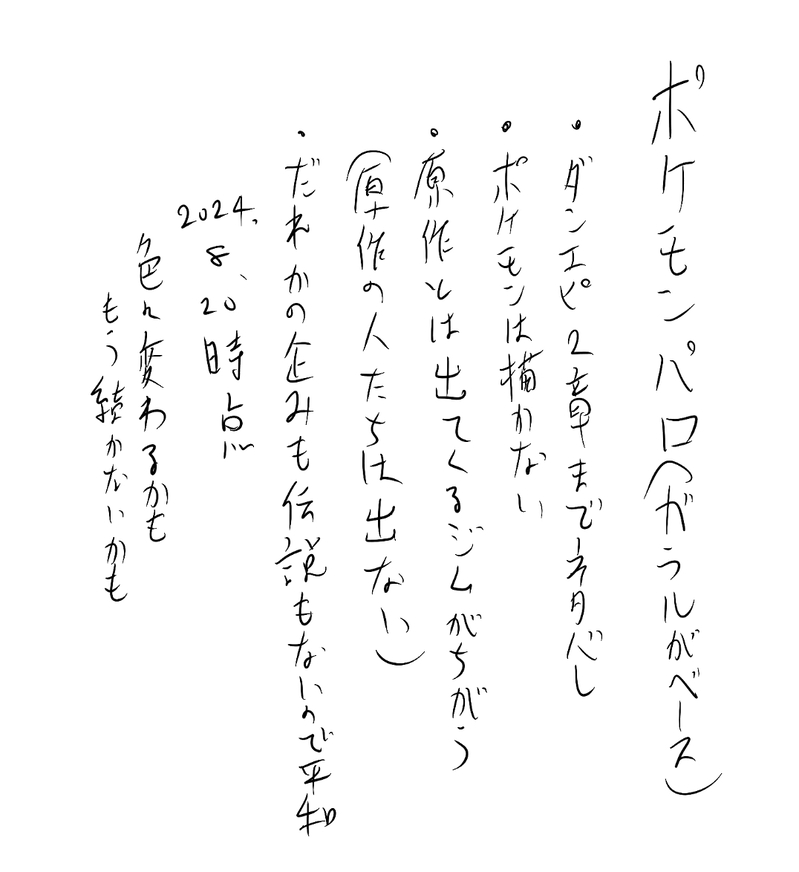 ポケモンパロ(ガラルがベース)
・ダンエピ2章までネタバレ
・ポケモンは描かない
・原作とは出てくるジムがちがう
(原作の人たちは出ない)
・だれかの企みも伝説もないので平和
2024.8.20時点
色々変わるかも
もう続かないかも